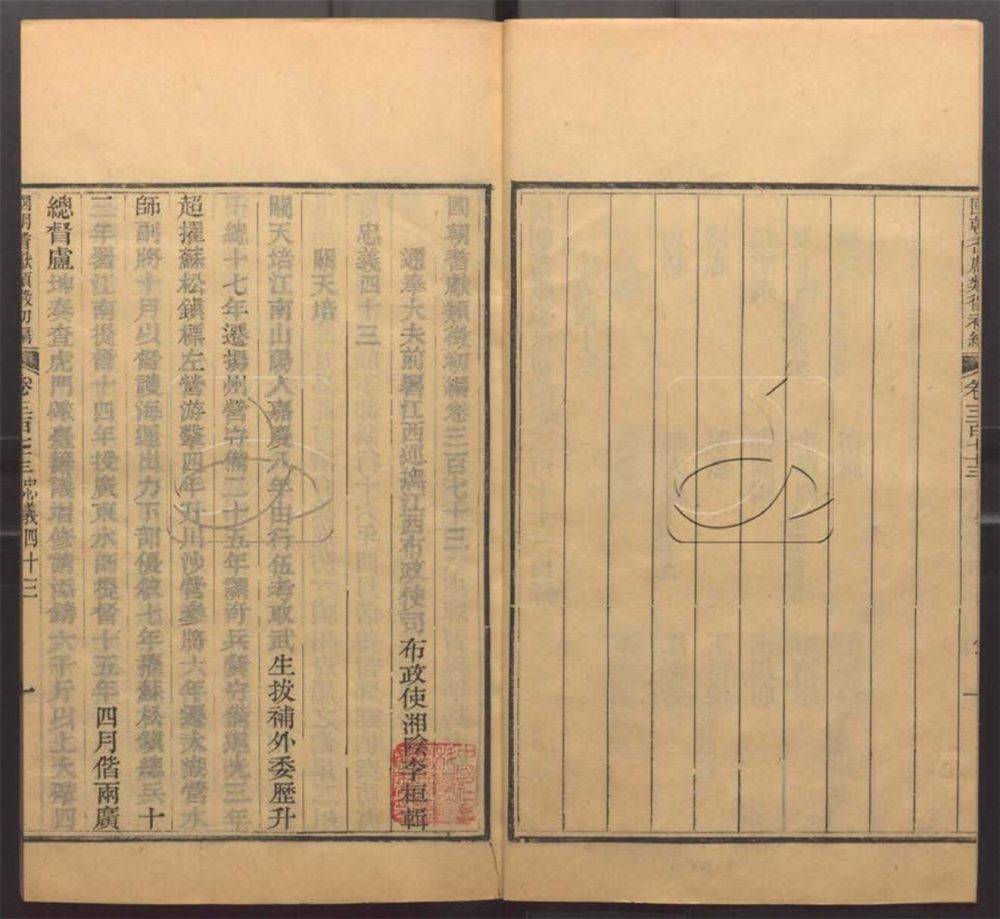 國朝耆獻類徵初編卷三百七十三
通奉大夫前署江西巡撫江西布政使司布政使湘陰李桓輯
忠義四十三
關天培
關天培江南山陽人嘉慶八年由行伍考取武生拔補外委歷升
千總十七年遷揚州營守備二十五年調奇兵營守備道光三年
超擢蘇松鎮標左營游擊四年升川沙營參將六年遷太湖營水
師副將十月以督護海運出力下部優敘七年擢蘇松鎮總兵十
三年署江南提督十四年授廣東水師提督十五年四月偕兩廣
總督盧坤奏查虎門礮臺籌議增修請添鑄六千斤以上大礮四
國朝耆獻類徵初編 卷三百七十三 忠義四十三 一
卷三百七十三